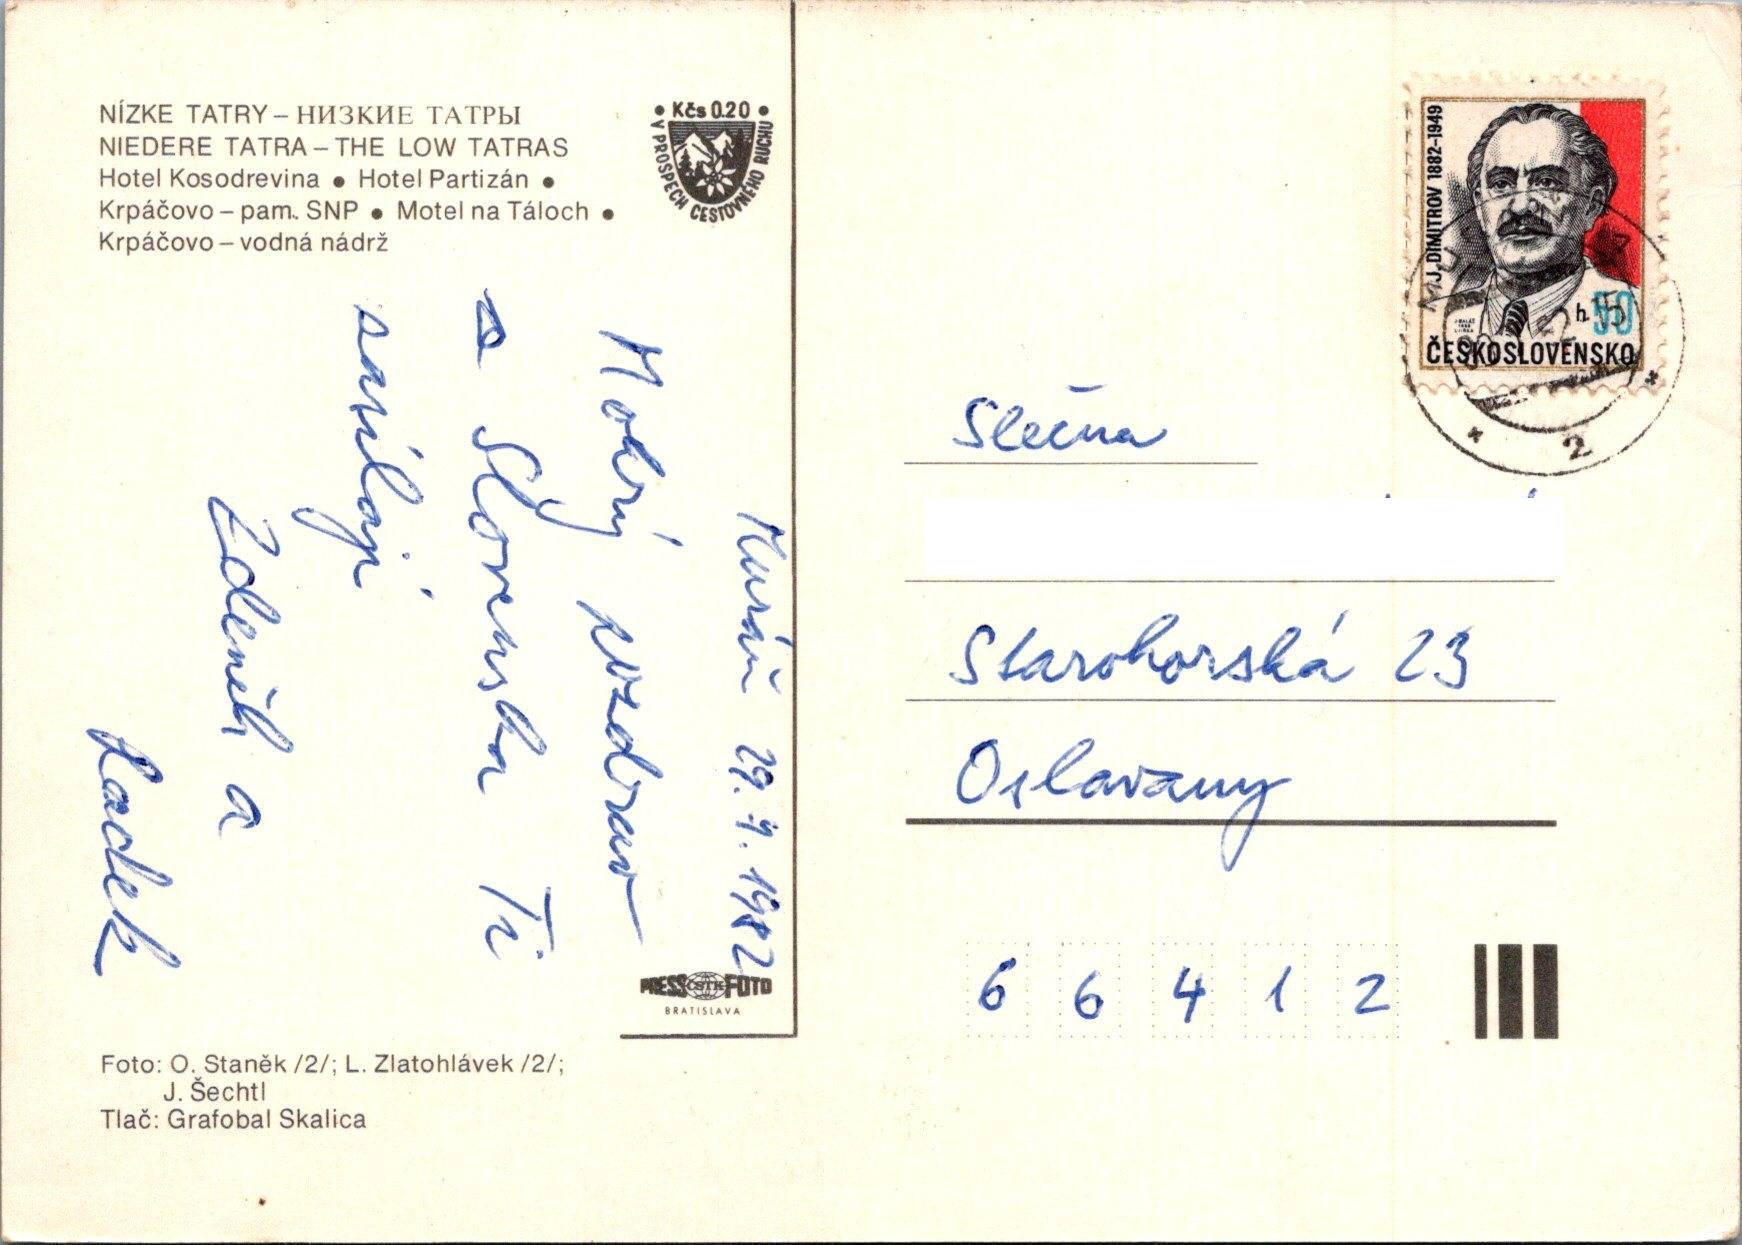 NÍZKE TATRY – НИЗКИЕ ТАТРЫ
NIEDERE TATRA – THE LOW TATRAS
Hotel Kosodrevina ● Hotel Partizán ●
Krpáčovo – pam. SNP ● Motel na Táloch ●
Krpáčovo – vodná nádrž
• Kčs 0.20 •
V PROSPECH CESTOVNÉHO RUCHU
Muráň 29.7.1982
Mokrý pozdrav
ze Slovenska Ti
zasílají
Zdeněk a
Radek
PRESS ČSTK FOTO
BRATISLAVA
Foto: O. Staněk /2/; L. Zlatohlávek /2/;
J. Šechtl
Tlač: Grafobal Skalica
J. DIMITROV 1882-1949
h 50
ČESKOSLOVENSKO
2
Slečna
Starohorská 23
Oslavany
66412